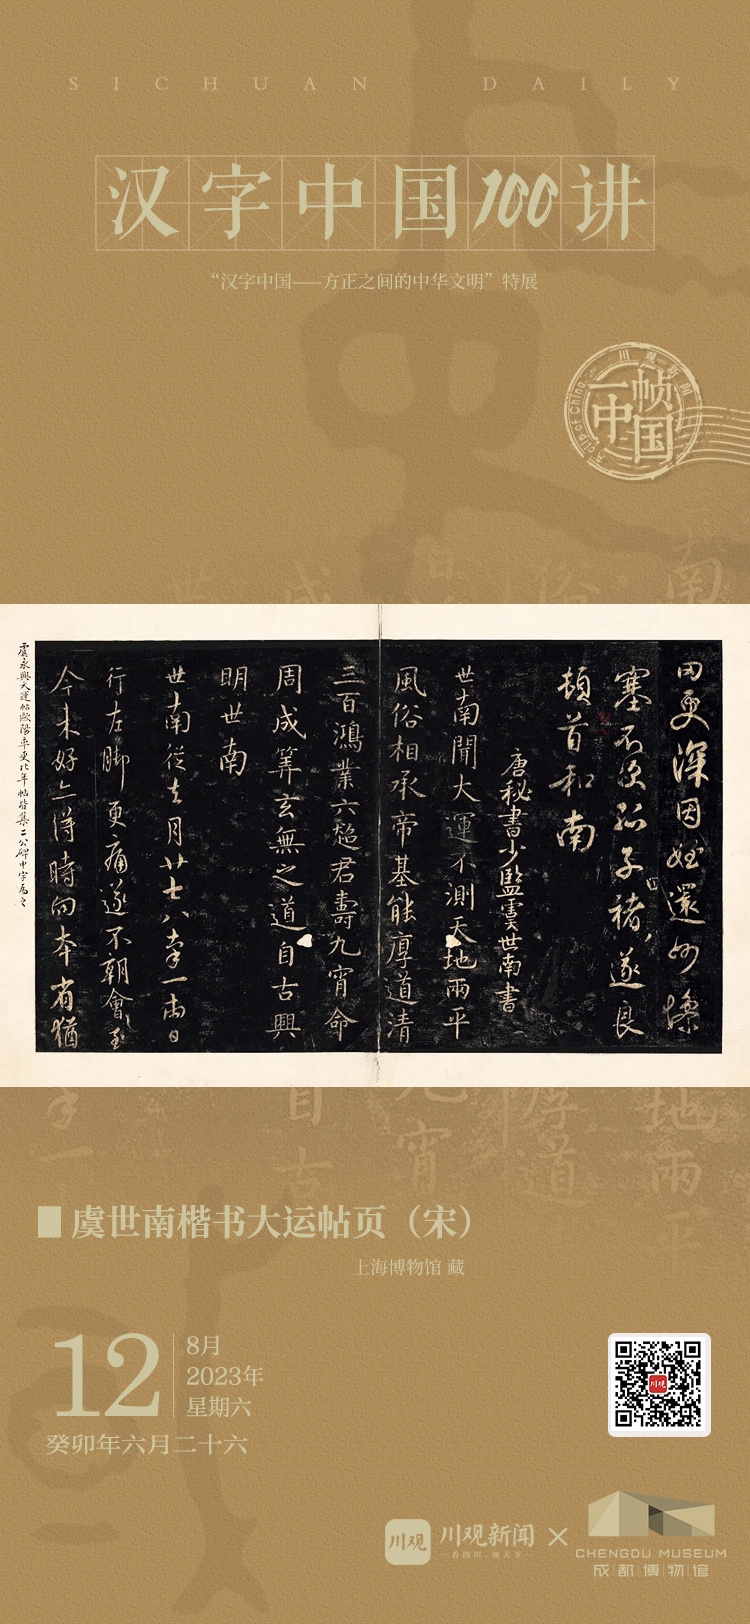 SICHUAN DAILY
汉字中国100讲
“汉字中国——方正之间的中华文明”特展
川观新闻
A clip of China
一帧
中国
田更深因姪還妙
塞不子褚遂良
頓首和南
唐秘書少監虞世南書
世南聞大運不測天地兩平
風俗相承帝基能厚道清
三百鴻業六超君壽九霄命
周成筭玄無之道自古興
明世南
世南從去月廿七八率一兩日
行左脚更痛遂不朝會至
今未好亦得時向本省猶
虞永興大運帖歐陽率更比年帖皆集二公碑中字為之
虞世南楷书大运帖页（宋）
上海博物馆 藏
12
8月
2023年
星期六
癸卯年六月二十六
川观
川观
川观新闻
一看四川，观天下
×
CHENGDU MUSEUM
成都博物馆